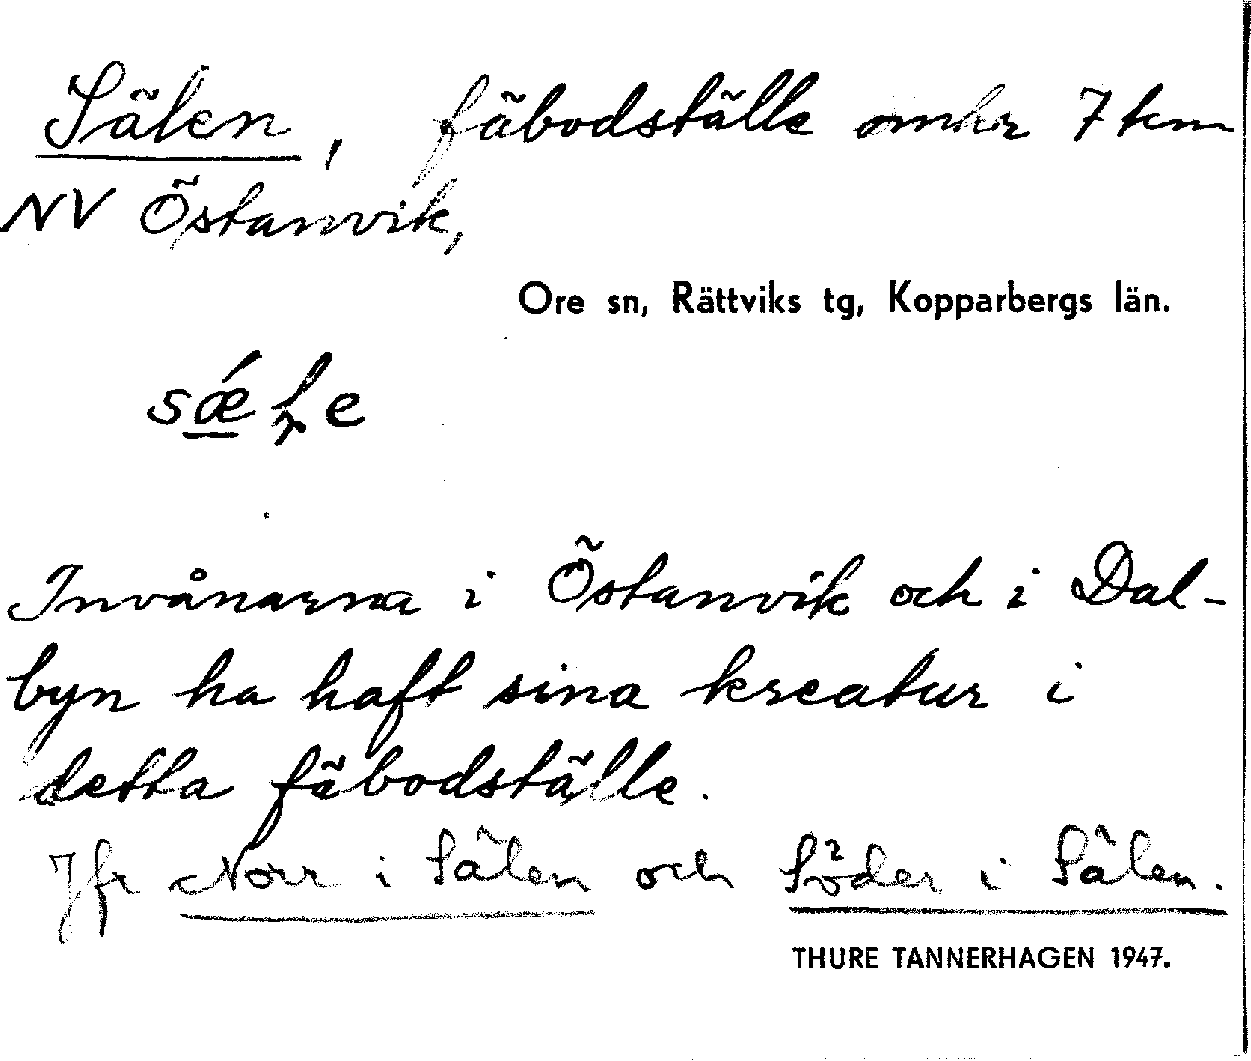 Sälen, fäbodställe omkr 7 km
NV Östanvik,
Ore sn, Rättviks tg, Kopparbergs län.
Invånarna i Östanvik och i Dal-
byn ha haft sina kreatur i
detta fäbodställe.
Jfr Norr i Sälen och Söder i Sälen.
THURE TANNERHAGEN 1947.